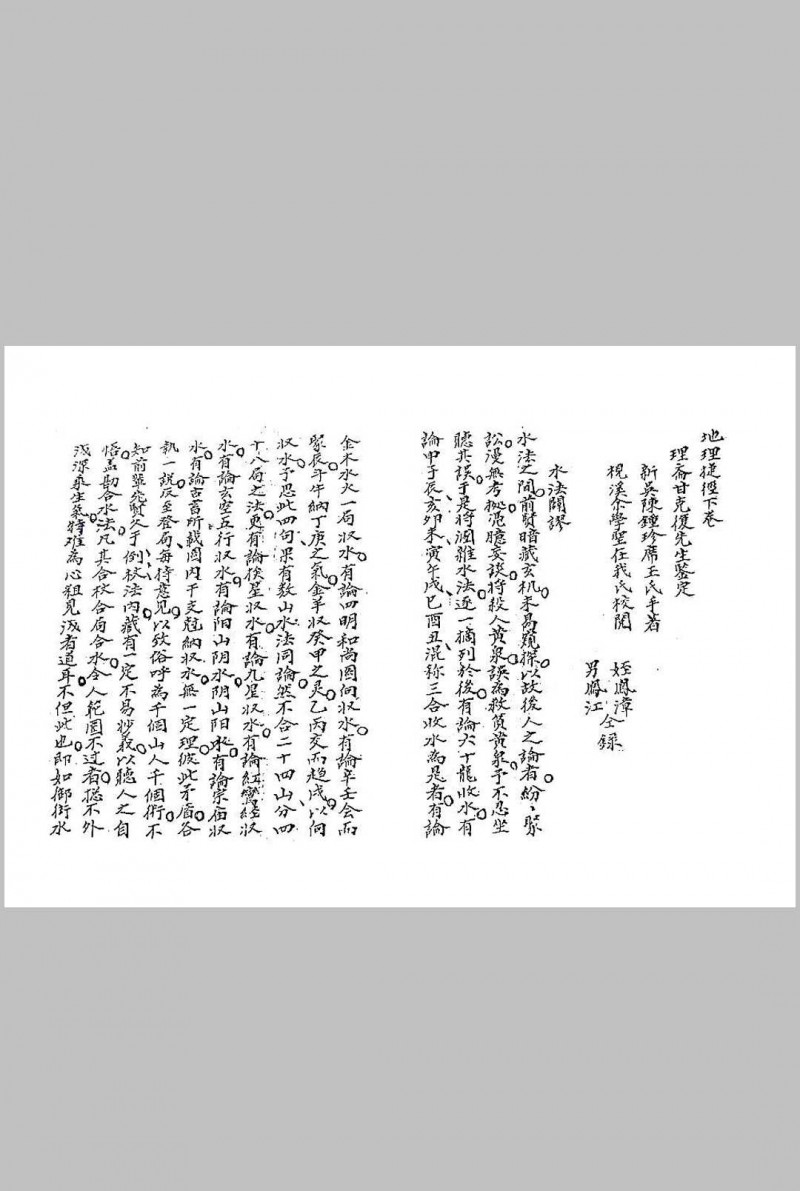 地理徒徑下卷
理斋甘克復先生鑒定
新吳陳鍾珍席玉氏手著
梘溪余學聖任我氏校閱
姪鳳漳
男鳳江
仝錄
水法闢謬
水法之間前賢暗藏玄机未易窺探以故後人之論者紛〻聚
訟漫無考據憑臆妄談將殺人黄泉誤為救貧黄泉予不忍坐
聽其誤于是將渾雜水法逐一摘列於後有論六十龍收水有
論申子辰亥卯未寅午戌巳酉丑混称三合收水為是者有論
金木水火一局収水有論四明和尚圖向収水有論辛壬会而
聚辰斗牛納丁庚之氣金羊収癸甲之灵乙丙交而趋戌以何
収水予思此四句果有数山水法同論然不合二十四山分四
十八局之法更有論挨星収水有論九星収水有論紅鸞經収
水有論玄空五行収水有論阳山阴水阴山阳水有論宗庙収
水有論古書所載圖内干支冠納収水無一定理彼此矛盾各
執一説反至登局每持意見以致俗呼為千個山人千個術不
知前輩先賢久于倒杖法内藏有一定不易妙義以聽人之自
悟孟勘合水法凡其合杖合局合水令人範圍不过者揔不外
浅深乘生氣特难為心粗見浅者道耳不但此也即如御街水